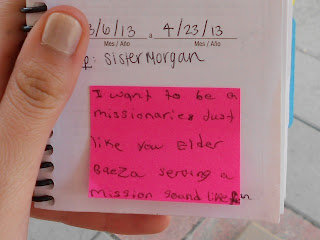 3/6/13 a 4/23/13
Mes / Año Mes / Año
: Sister Morgan
I want to be a
missionaries Just
like you Elder
Baeza serving a
mission sound like fun